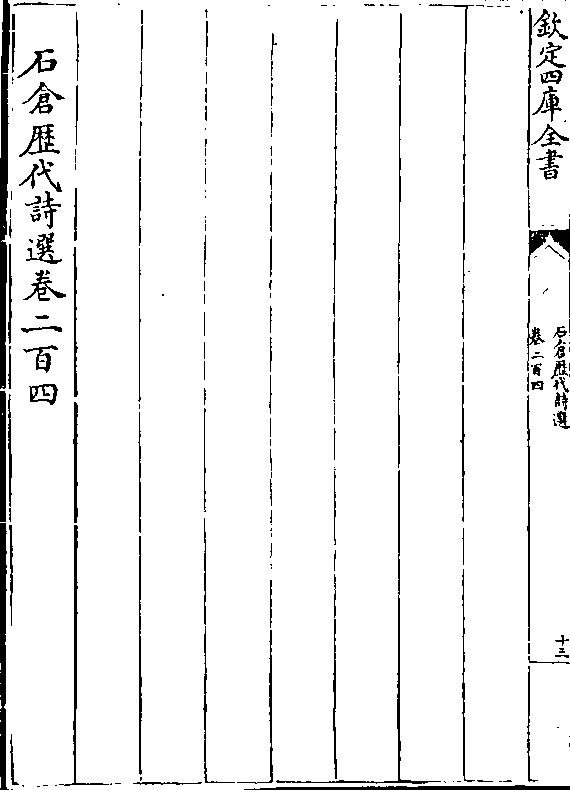 欽定四庫全書
石倉歷代詩選
卷二百四
十三
石倉歷代詩選卷二百四